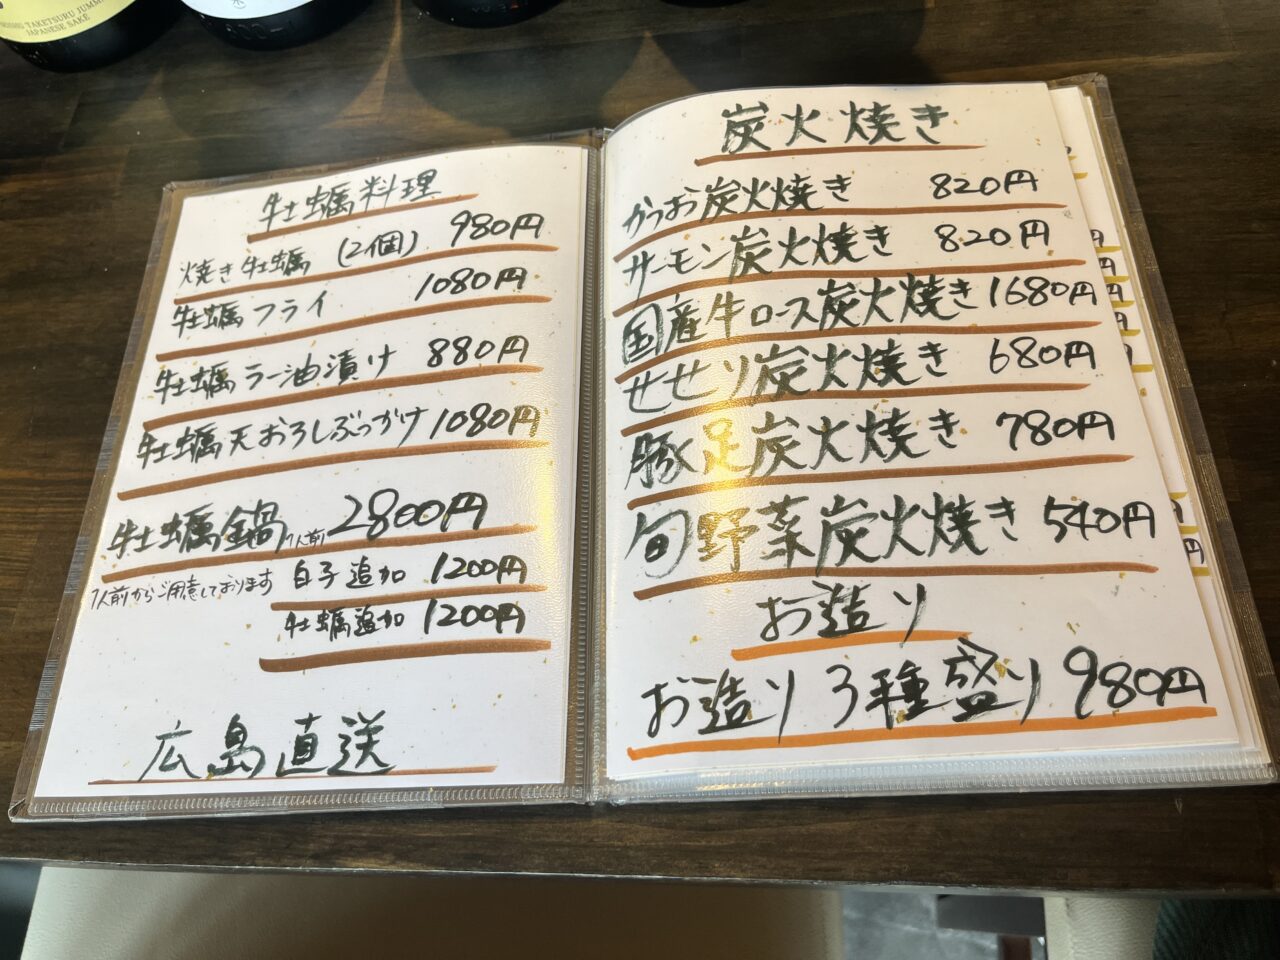 TAKETSURU JUNMAI
JAPANESE SAKE
牡蠣料理
焼き牡蠣 (2個) 980円
牡蠣フライ 1080円
牡蠣ラー油漬け 880円
牡蠣天おろしぶっかけ 1080円
牡蠣鍋 1人前 2800円
1人前からご用意しております 白子追加 1200円
牡蠣追加 1200円
広島直送
炭火焼き
かつお炭火焼き 820円
サーモン炭火焼き 820円
国産牛ロース炭火焼き 1680円
せせり炭火焼き 680円
豚足炭火焼き 780円
旬野菜炭火焼き 540円
お造り
お造り3種盛り 980円